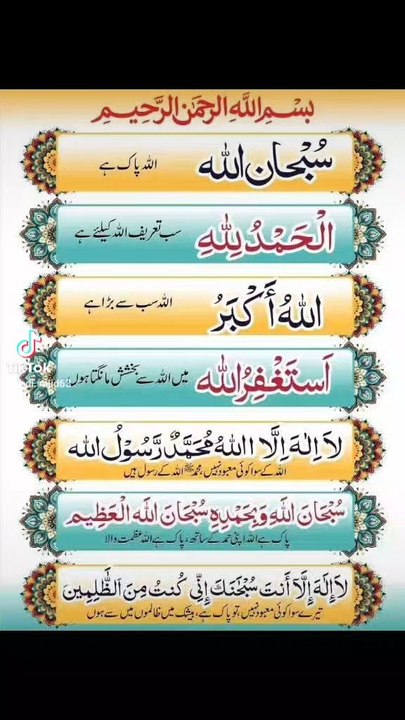 بِسْمِ اللهِ الرَّحْمٰنِ الرَّحِيْمِ
سُبْحَانَ اللّٰه
اللہ پاک ہے
الْحَمْدُ لِلّٰهِ
سب تعریف اللہ کیلئے ہے
اللهُ أَكْبَرُ
اللہ سب سے بڑا ہے
اَسْتَغْفِرُ اللّٰه
میں اللہ سے بخشش مانگتا ہوں
لَا اِلٰهَ اِلَّا اللهُ مُحَمَّدٌ رَّسُوْلُ الله
اللہ کے سوا کوئی معبود نہیں، محمد ﷺ اللہ کے رسول ہیں
سُبْحَانَ اللّٰهِ وَبِحَمْدِهِ سُبْحَانَ اللّٰهِ الْعَظِيْمِ
پاک ہے اللہ اپنی حمد کے ساتھ، پاک ہے اللہ عظمت والا
لَا إِلٰهَ إِلَّآ أَنتَ سُبْحٰنَكَ إِنِّي كُنتُ مِنَ الظّٰلِمِينَ
تیرے سوا کوئی معبود نہیں، تو پاک ہے، بیشک میں ظالموں میں سے ہوں
TikTok